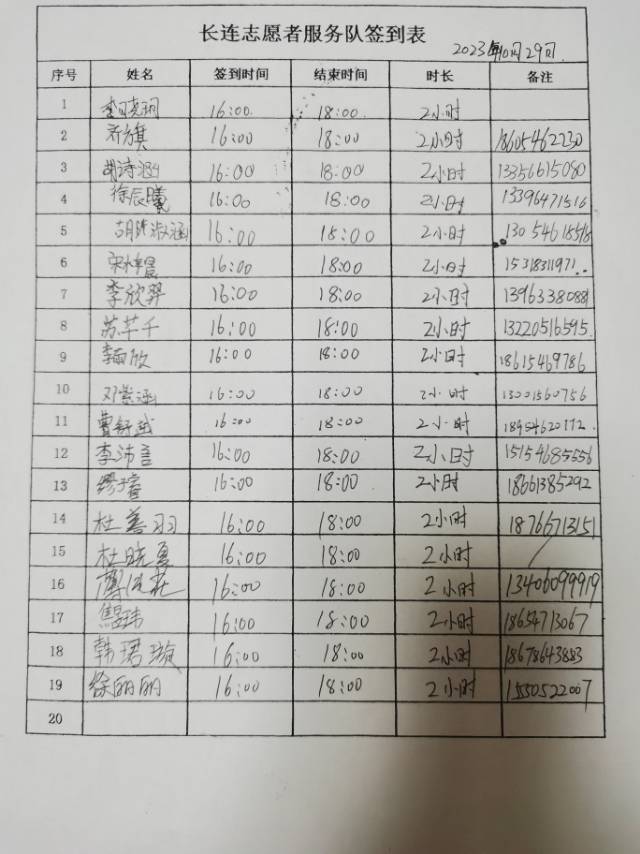 长连志愿者服务队签到表
2023年10月29日
序号 姓名 签到时间 结束时间 时长 备注
1 李晓珂 16:00 18:00 2小时
2 乔旗 16:00 18:00 2小时 18605462230
3 胡诗涵 16:00 18:00 2小时 13356615080
4 徐辰曦 16:00 18:00 2小时 13396471516
5 胡陈淑涵 16:00 18:00 2小时
6 16:00 18:00 2小时 15318311971
7 李欣羿 16:00 18:00 2小时 13963380881
8 苏芊千 16:00 18:00 2小时 13220516595
9 16:00 18:00 2小时 18615469786
10 邓紫涵 16:00 18:00 2小时 13001560756
11 16:00 18:00 2小时 18954620112
12 李沛言 16:00 18:00 2小时
13 16:00 18:00 2小时 18661385292
14 杜善羽 16:00 18:00 2小时 18766713151
15 杜晓勇 16:00 18:00 2小时
16 16:00 18:00 2小时 13406099919
17 16:00 18:00 2小时 18654713067
18 韩珺璇 16:00 18:00 2小时 18678643883
19 徐丽丽 16:00 18:00 2小时 15550522007
20